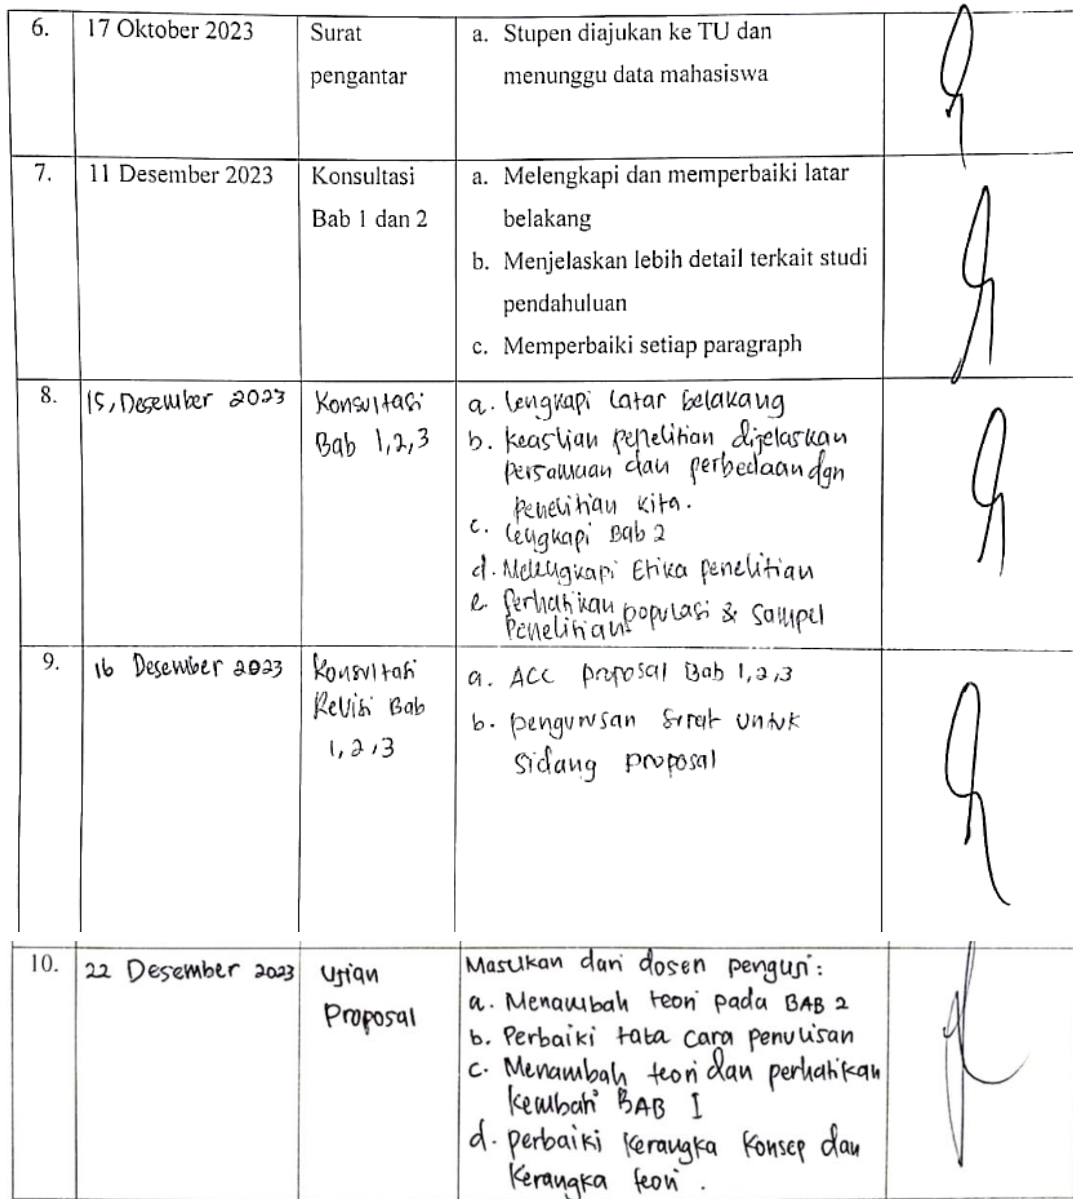 6. 17 Oktober 2023 Surat a. Stupen diajukan ke TU dan
pengantar menunggu data mahasiswa
7. 11 Desember 2023 Konsultasi a. Melengkapi dan memperbaiki latar
Bab 1 dan 2 belakang
b. Menjelaskan lebih detail terkait studi
pendahuluan
c. Memperbaiki setiap paragraph
8. 15, Desember 2023 Konsultasi a. lengkapi latar belakang
Bab 1,2,3 b. keaslian penelitian dijelaskan
persamaan dan perbedaan dgn
penelitian kita.
c. lengkapi Bab 2
d. Melengkapi Etika penelitian
e. Perhatikan populasi & sampel
Penelitian
9. 16 Desember 2023 Konsultasi a. ACC proposal Bab 1,2,3
Revisi Bab b. pengurusan surat untuk
1,2,3 sidang proposal
10. 22 Desember 2023 Ujian Masukan dari dosen penguji:
Proposal a. Menambah teori pada BAB 2
b. Perbaiki tata cara penulisan
c. Menambah teori dan perhatikan
kembali BAB I
d. perbaiki kerangka konsep dan
kerangka teori.